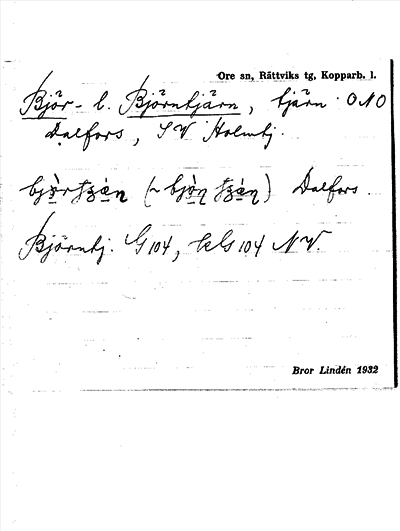 Ore sn, Rättviks tg, Kopparb. l.
Björ- l. Björntjärn, tjärn ONO
Dalfors, SV Holmtj.
Dalfors.
Björntj. G 104, kls 104 NV.
Bror Lindén 1932